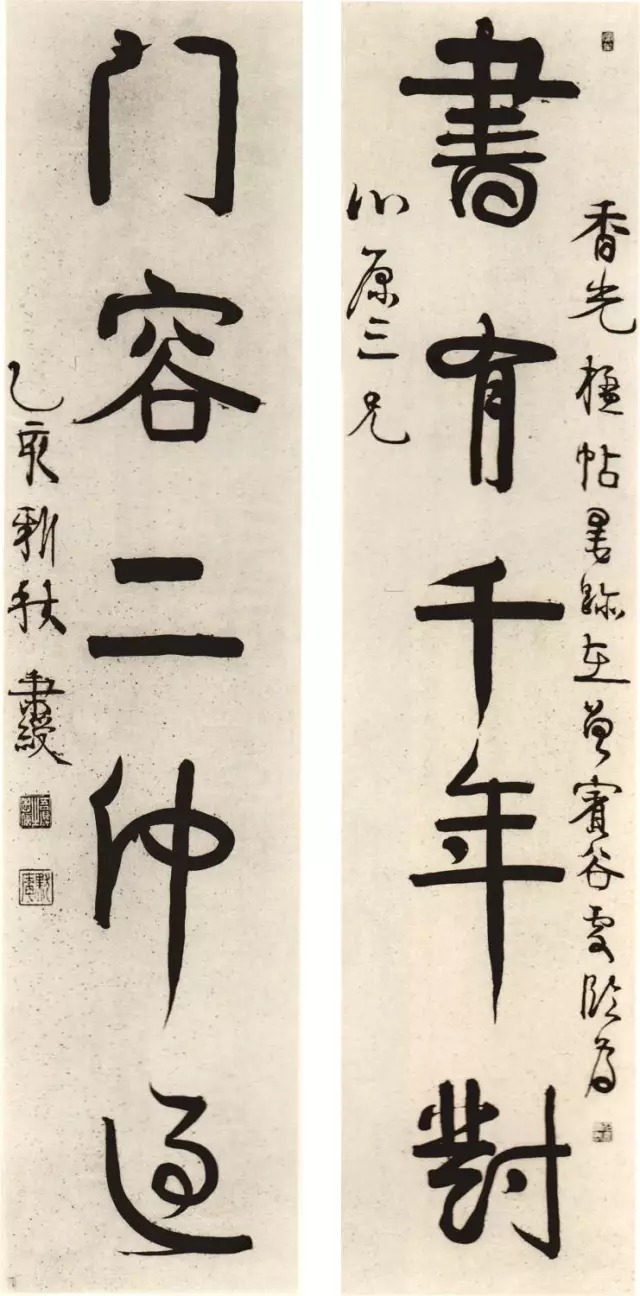 香光楹帖墨跡在曾賓谷處臨為
書有千年對
原三兄
門容二仲過
乙亥新秋秉綬